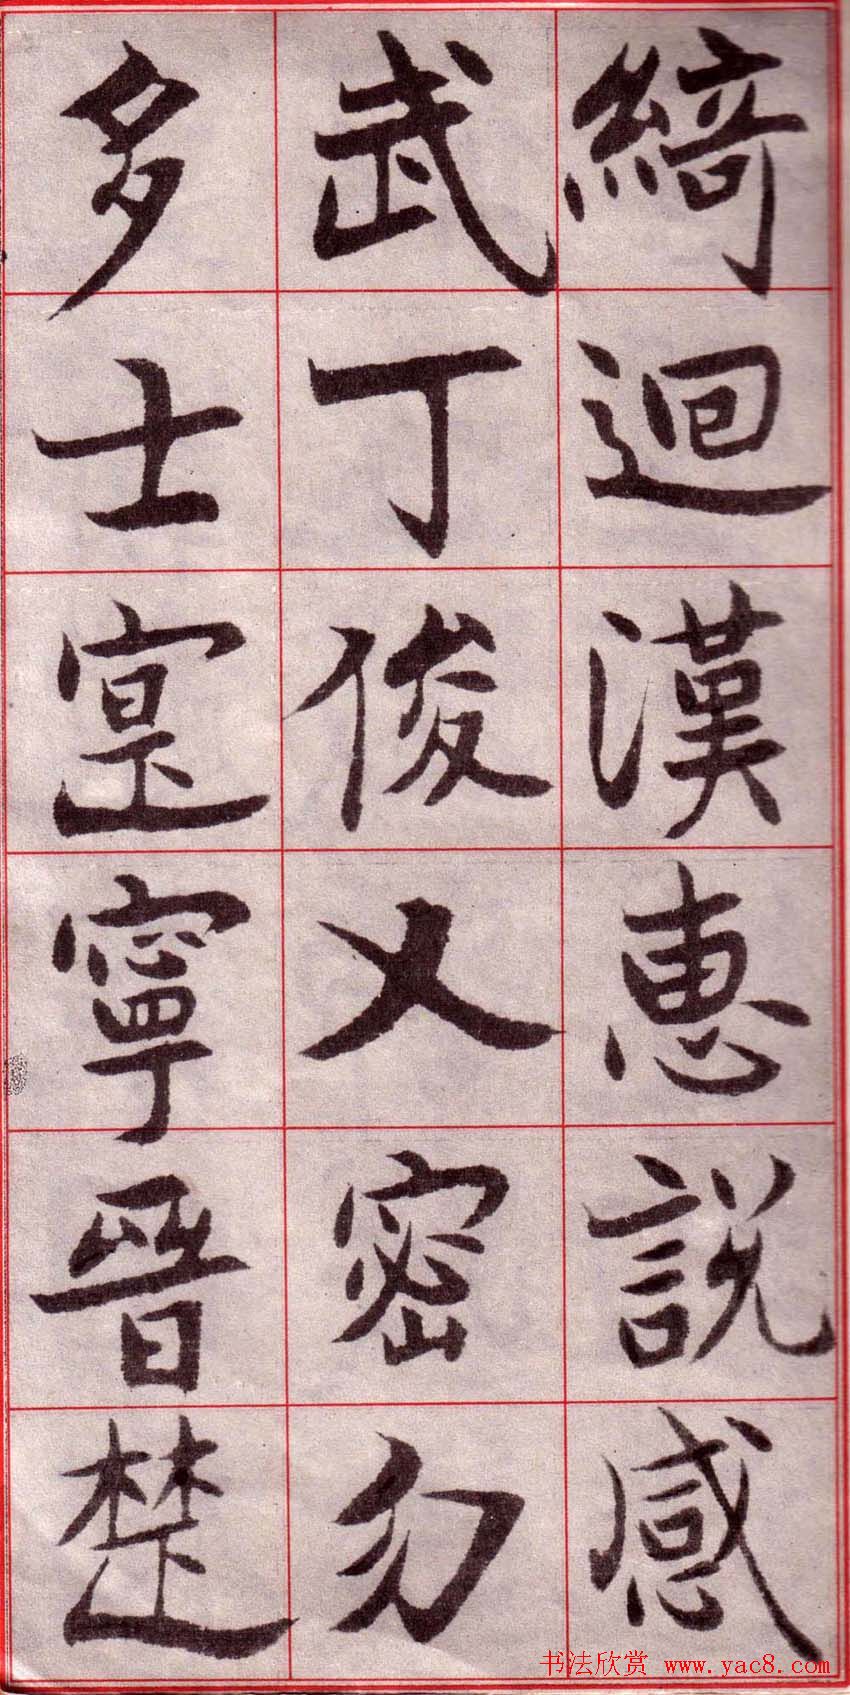 綺迴漢惠說感
武丁俊乂密勿
多士寔寧晉楚
书法欣赏 www.yac8.com